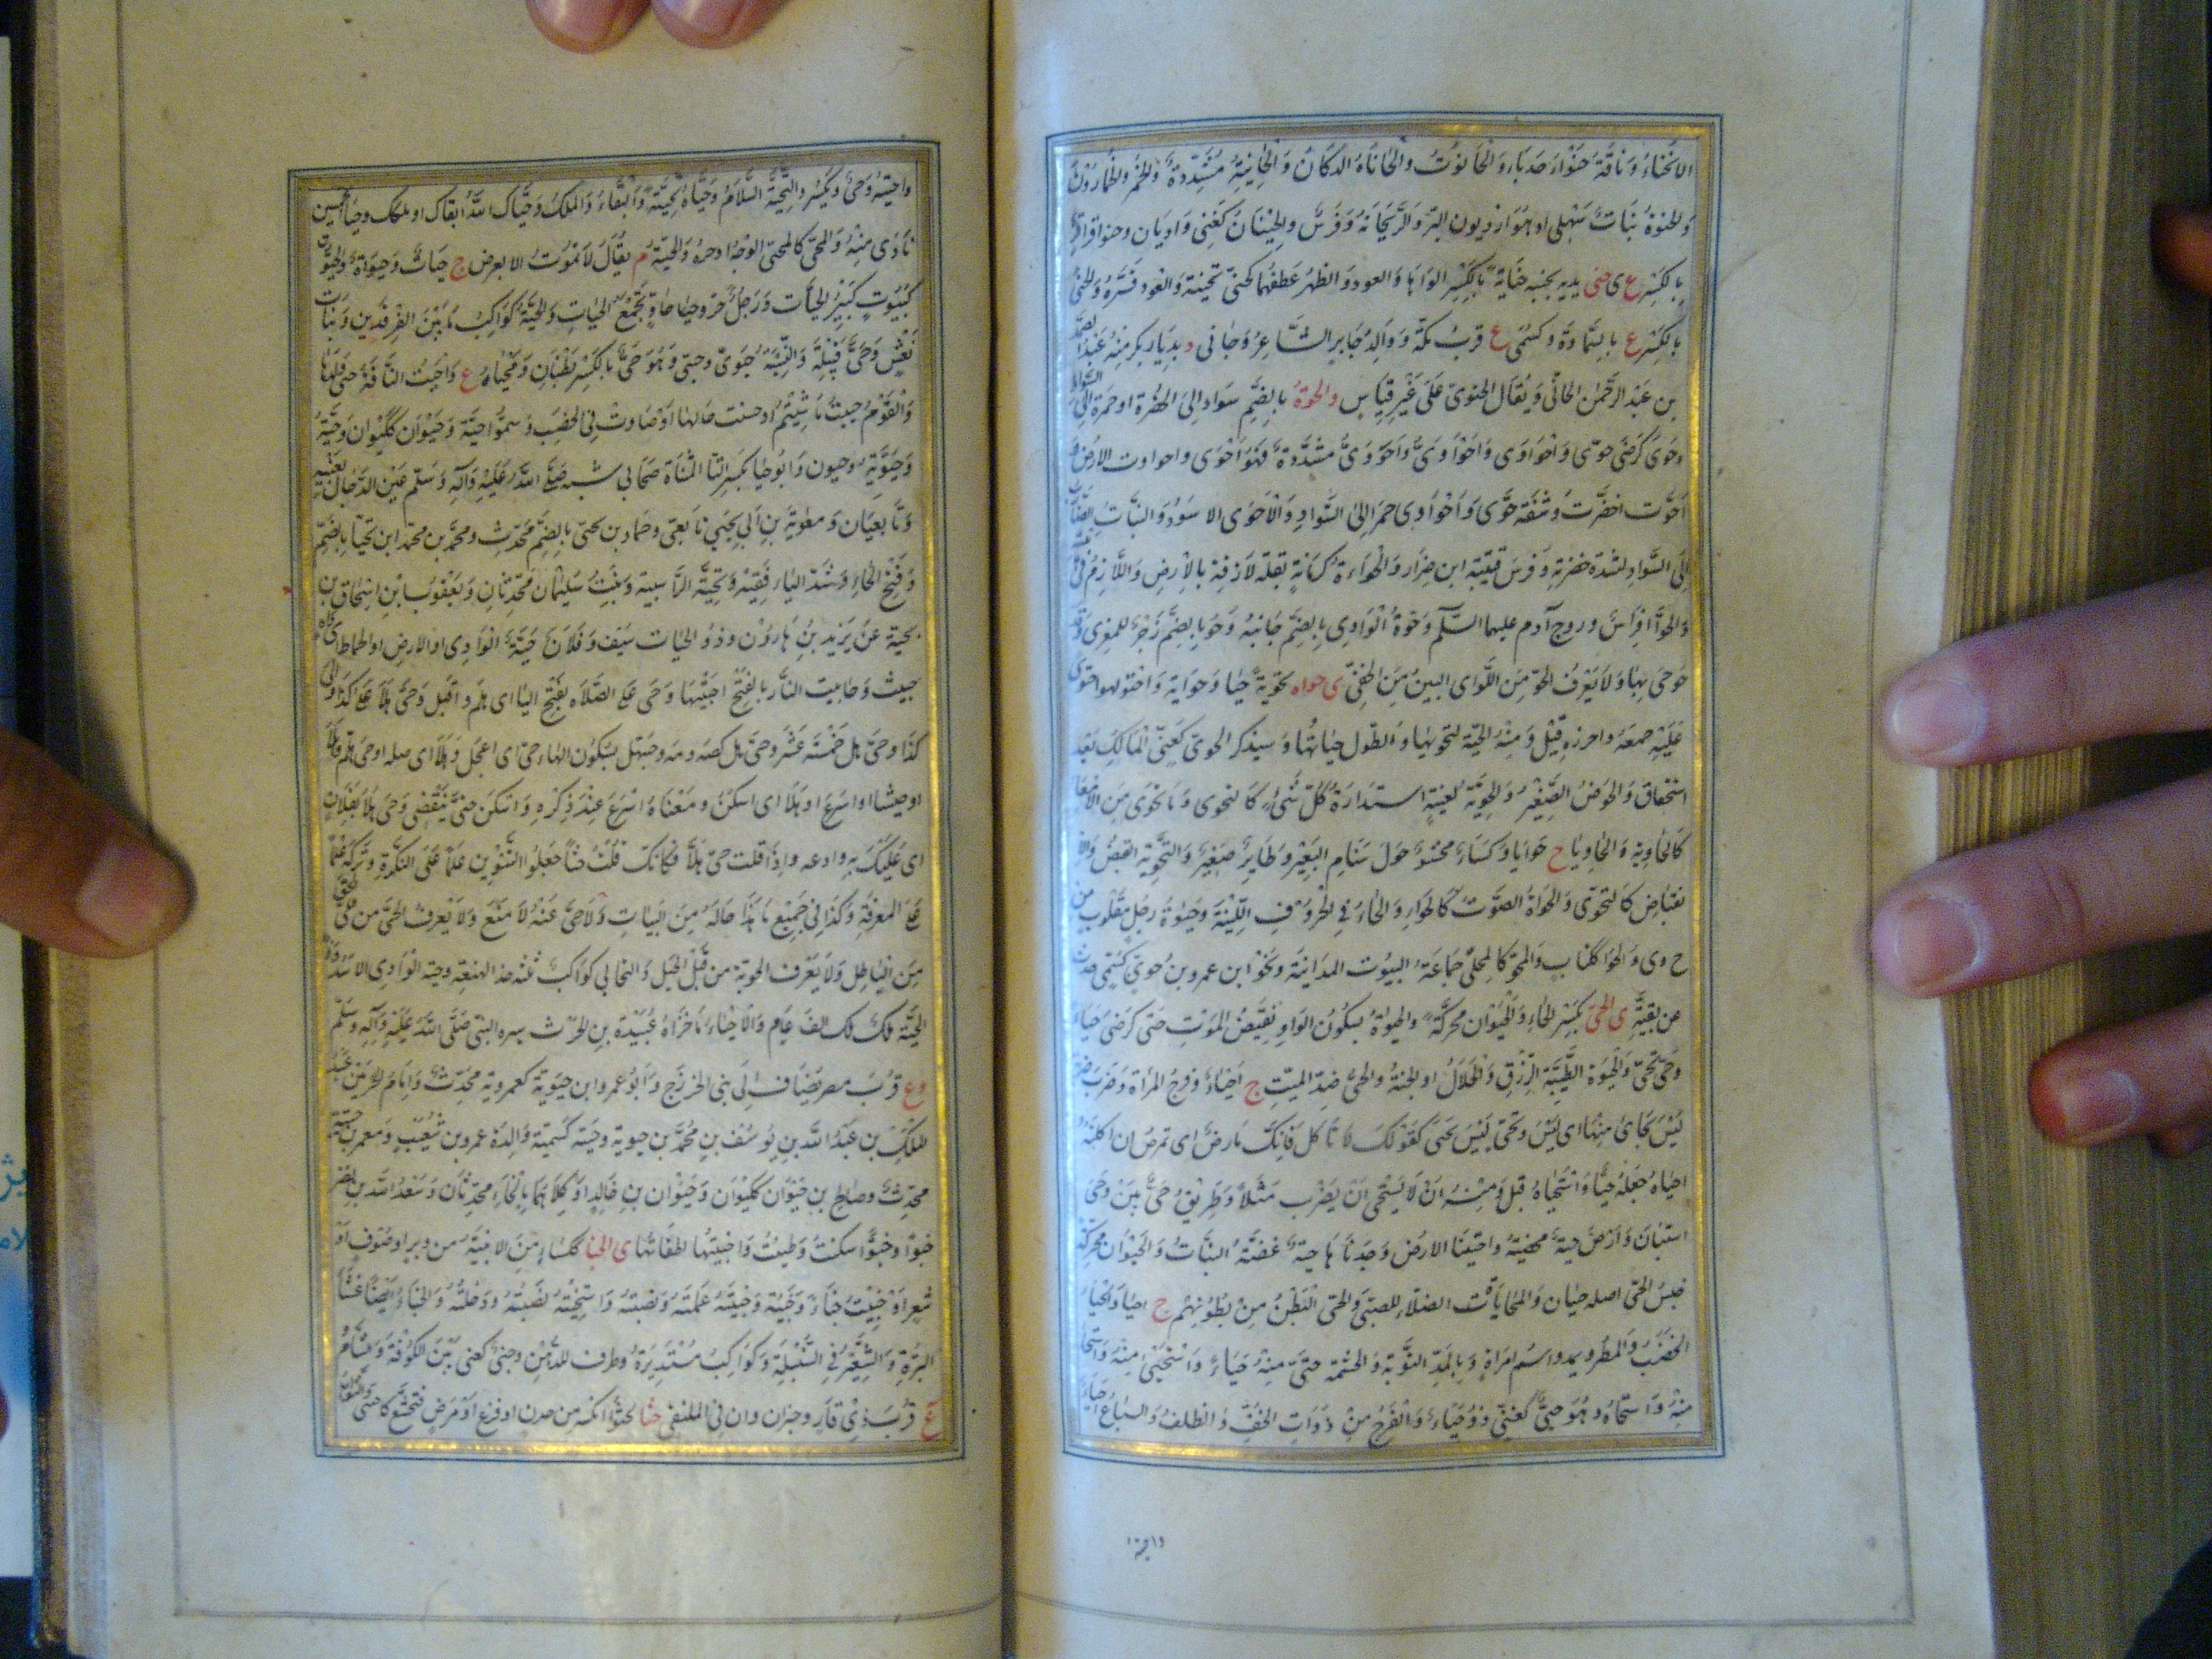 الانحناء وناقة حنواء حدباء والحانوت والحاناة الدكان والحانية مشددة الخمر والخمارون
والحنوة نبات سهلى او هو اذريون البر والريحانة وفرس والحنيان كغنى واديان وحنو قراقر
بالكسر ع ى حنى يديه يحنيه حناية بالكسر لواها والعود والظهر عطفهما كحنى تحنية والعود قشره والحنى
بالكسر ع بالسماوة وكسمى ع قرب مكة ووالد جابر الشاعر وحانى د بديار بكر منه عبد الصمد
بن عبد الرحمن الحانى ويقال الحنوى على غير قياس والحوة بالضم سواد الى الخضرة او حمرة الى السواد
وحوى كرضى حوى واحواوى واحواوى واحووى مشددة فهو احوى واحواوت الارض و
احوت اخضرت وشفة حوى واحواوى حمر الى السواد والاحوى الاسود والنبات الضارب
الى السواد لشدة خضرته وفرس قتيبة ابن ضرار والحواءة كرمانة بقلة لازقة بالارض واللازم فى
والحوا افراس وزوج آدم عليهما السلم وحوة الوادى بالضم جانبه وحو بالضم زجر للمعزى وقد
حوحى بها ولا يعرف الحو من اللو اى البين من الخفى ى حواه يحويه حيا وحواية واحتواه واحتوى
عليه جمعه واحرزه قيل ومنه الحية لتحويها والطول حياتها وسيذكر الحوى كغنى المالك بعد
استحقاق والحوض الصغير والحوية كغنية استدارة كل شىء كالتحوى وما تحوى من الامعاء
كالحاوية والحاويا ج حوايا وكساء محشو حول سنام البعير وطاير صغير والتحوية القبض والا
نقباض كالتحوى والحواة الصوت كالخوار والحاء فى الحروف اللينة وحيوة رجل مقلوب من
ح وى والحوا ككتاب والمحوى كالمعلى جماعة البيوت المدانية ونحو ابن عمرو بن حوى كسمى حدث
عن بقية ى الحى بكسر الحاء والحيوان محركة والحيوة بسكون الواو نقيض الموت حى كرضى حياء
وحى يحى والحيوة الطيبة الرزق والحلال او الجنة والحى ضد الميت ج احياء وفرج المراة وضرب ضربة
ليس بحائ منها اى ليس وتحى ليس بحى كقولك لا تاكل فانك مارض اى تمرض ان اكلته
احياه جعله حيا واستحياه قيل ومنه ان لا يستحى ان يضرب مثلا وطريق حى بين وحى
استبان وارض حية مخصبة واحيينا الارض وجدناها حية غضة النبات والحيوان محركة
جنس الحى اصله حييان والمحاياة الغذاء للصبى والحى البطن من بطونهم ج احيا والحيا
الخصب والمطر ويمد واسم امراة وبالمد التوبة والحشمة حى منه حياء واستحيى منه واستحا
منه واستحياه وهو حيى كغنى ذو حياء والفرج من ذوات الخف والظلف والسباع ج احياء
واحية وحى ويكسر والتحية السلام وحياه تحية والبقاء والملك وحياك الله ابقاك او ملكك وحيا الخمسين
نادى منه والمحيى كالمحيى الوجه او حره والحية م يقال لا تموت الا بعرض ج حيات وحيوات والحيوت
كبيوت كبير الحيات ورجل حواء وحياء حاوٍ يجمع الحيات والحية كواكب ما بين الفرقدين وبنات
نعش وحى قبيلة والنسبة حيوى وحيى وهو حى بالكسر بطنان ومحياه ع واحيت الناقة حى ولدها
والقوم حييت ماشيتهم او حسنت حالها او صاروا فى الخصب وسموا حية وحيوان ككيوان وحية
وحيوية وحيون وابو حيا بكسر التا المثناة صحابى شبه صلى الله عليه وآله وسلم عين الدجال بعينه
وتابعيان ومعوية بن ابى يحيى تابعى وحماد بن يحيى بالضم محدث ومحمد بن محمد ابن تحيا بالضم
وفتح الحاء وشد الياء فقيه وتحية الراسبية وبنت سليمان محدثتان ويعقوب بن اسحاق بن
تحية عن يزيد بن هارون وذو الحيات سيف وفلان حية الوادى او الارض او الحماط اى داه
خبيث وحاييت النار بالفتح احييتها وحى على الصلاة بفتح اليا اى هلم واقبل وحى هلا على كذا والى
كذا وحى هل خمسة عشر وحى هل كصه ومه وحيهل بسكون الهاء حى اى اعجل وهلا اى صله او حى هلم وهلا
او حثيثا او اسرع او هلا اى اسكن ومعناه اسرع عند ذكره واسكن حتى ينقضى وحى هلا بفلان
اى عليك به وادعه واذا قلت حى هلا فكانك قلت حثا جعلوا التنوين علما على النكرة وتركه علما
على المعرفة وكذا فى جميع ما هذا حاله من المبنيات ولا حى عنه لا منع ولا يعرف الحى من اللى الحق
من الباطل ولا يعرف الحوية من فتل الحبل والتحايى كواكب ثلثة حذ الهنعة وحية الوادى الاسد وذو
الحية ملك ملك الف عام والاحياء ماء غزاه عبيدة بن الحرث سيره النبى صلى الله عليه وآله وسلم
وع قرب مصر يضاف الى بنى الخزرج وابو عمرو ابن حيوية كعمروية محدث وامام الحرمين عبد
الملك بن عبد الله بن يوسف بن محمد بن حيوية وحية كسمية والدة عمرو بن شعيب ومعمر بن حيية
محدث وصالح بن حيوان ككيوان وحيوان بن خالد او كلاهما بالخاء محدثان وسعد الله بن نصر
خبوا وخبوا سكنت وطفيت واخبيتها اطفاتها ى الخبا كلساء من الابنية من وبر او صوف او
شعر اوخبيت خباء وخبية وخبيته عملته ونصبته واستخبيته نصبته ودخلته والخباء ايضا غشا
البرة والشعيرة فى السنبلة وكواكب مستديرة وظرف للدهن وخبى كغنى بين الكوفة والشام و
ع قرب ذى قار وخبزان وان فى الملتقى ختا يختوا انكسر من حزن او فزع او مرض فتخشع كاختتى والثوب
واحية